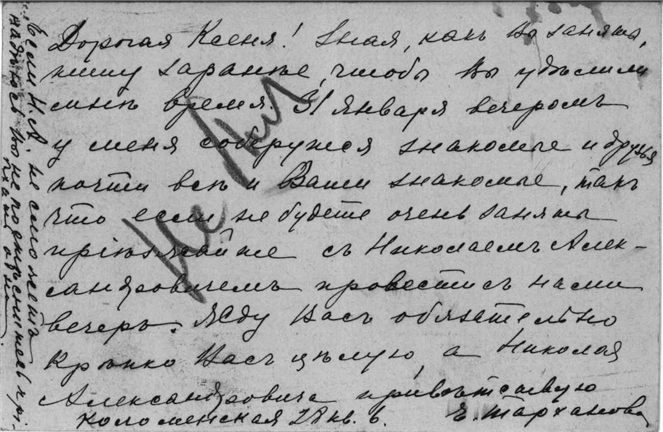 Дорогая Ксеня! Зная, какъ Вы заняты,
пишу заранѣе, чтобы Вы удѣлили
мнѣ время. 31 Января вечеромъ
у меня соберутся знакомые и друзья
почти всѣ и Ваши знакомые, такъ
что если не будете очень заняты
пріѣзжайте съ Николаемъ Алек-
сандровичемъ провести съ нами
вечеръ. Жду Васъ обязательно
Крѣпко Васъ цѣлую, а Николая
Александровича привѣтствую
Коломенская 2 кв. 6. Е. Тарханова
Если Н.А. не сможетъ
надѣюсь Вы не постѣснитесь прі-
ѣхать одна